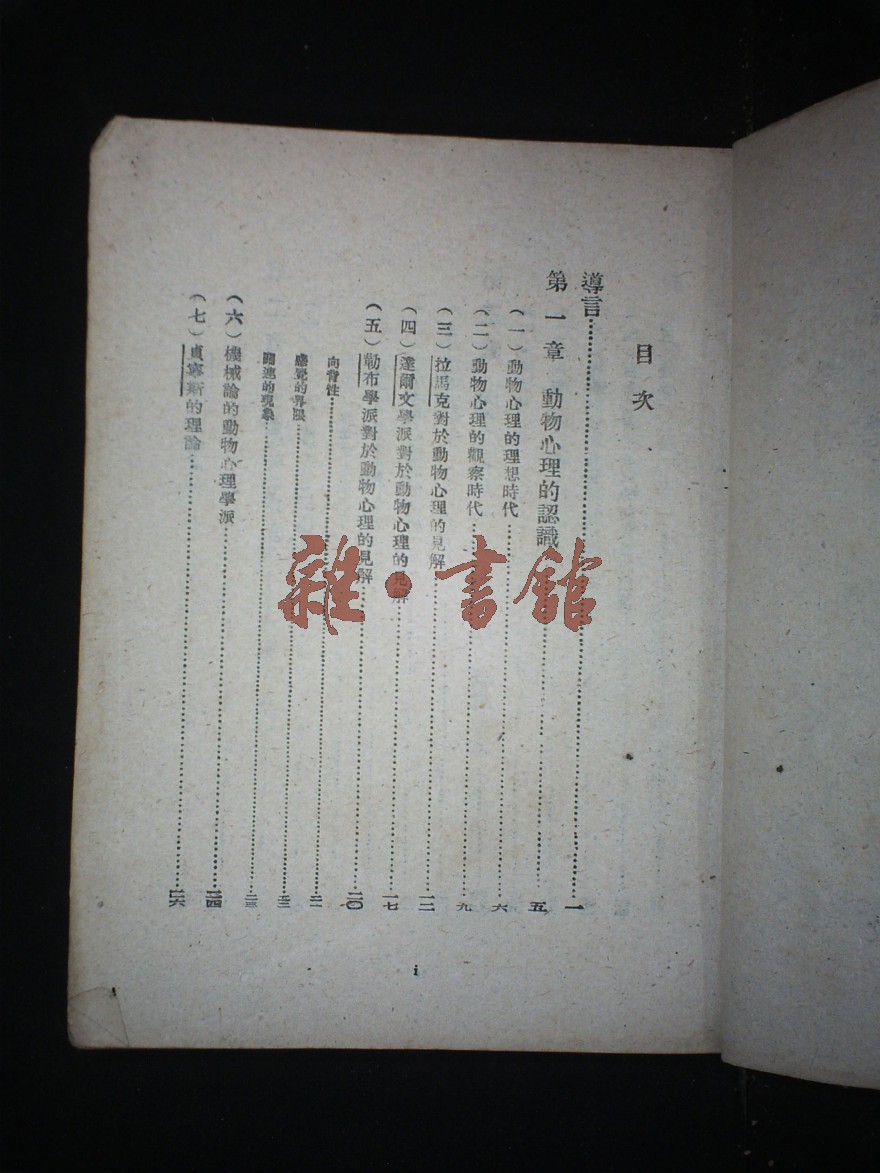 目次
導言……一
第一章 動物心理的認識……五
(一)動物心理的理想時代……六
(二)動物心理的觀察時代……九
(三)拉馬克對於動物心理的見解……一二
(四)達爾文學派對於動物心理的見解……一七
(五)勒布學派對於動物心理的見解……二〇
向背性……二一
感覺的界限……二三
關連的現象……二三
(六)機械論的動物心理學派……二四
(七)貞寧斯的理論……二六
i
雜·書館